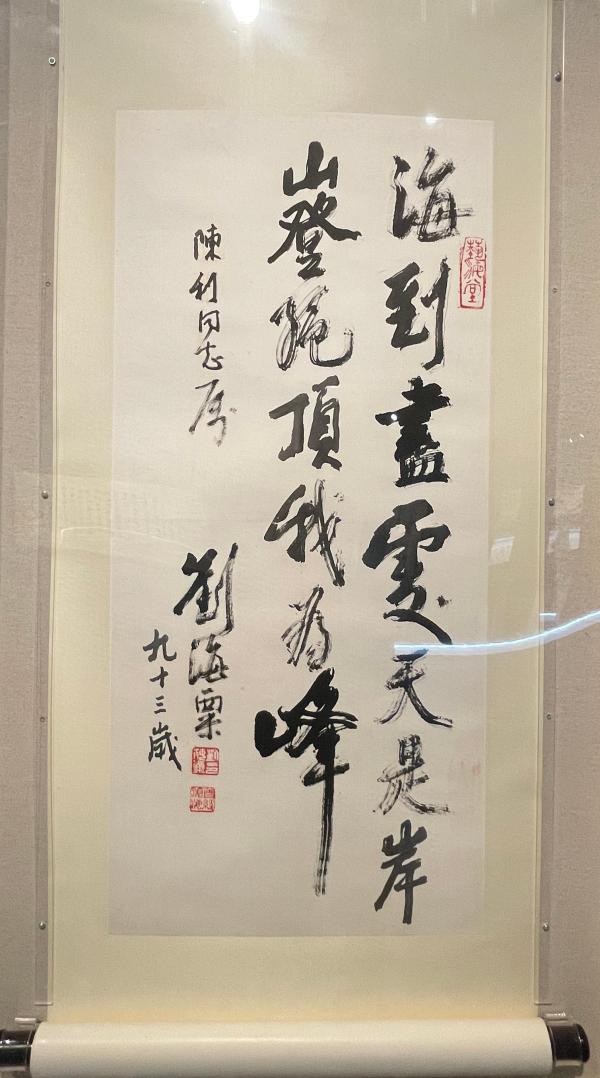 藝海堂
海到盡處天是岸
山登絶頂我為峰
陳利同志屬
劉海粟
九十三歲